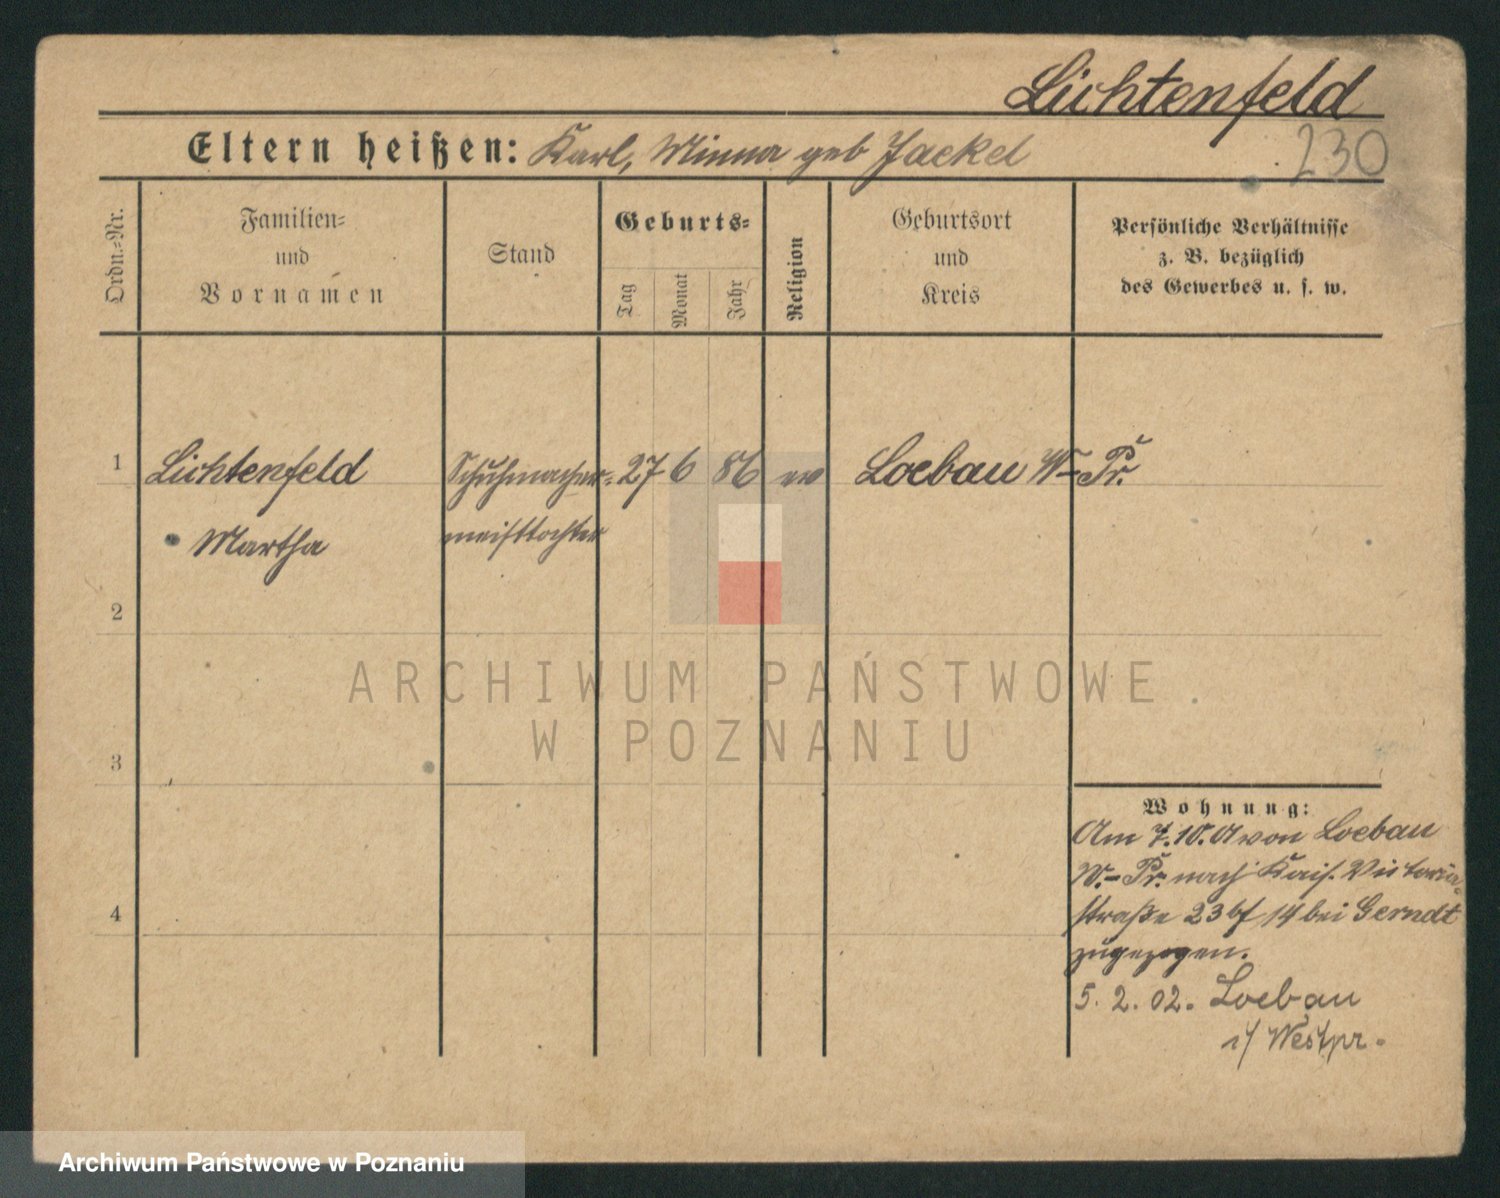 Lichtenfeld
Eltern heißen: Karl, Minna geb Jaekel
230
Ordn.-Nr.
Familien-
und
Vornamen
Stand
Geburts-
Tag
Monat
Jahr
Religion
Geburtsort
und
Kreis
Persönliche Verhältnisse
z. B. bezüglich
des Gewerbes u. s. w.
1 Lichtenfeld Schuhmacher- 27 6 86 ev Loebau W-Pr.
Martha meisttochter
2
ARCHIWUM PAŃSTWOWE
W POZNANIU
3
Wohnung:
Am 7.10.01 von Loebau
W.-Pr. nach Kais. Victoria-
4
straße 23 bei Gerndt
zugezogen.
5. 2. 02. Loebau
i/ Westpr.
Archiwum Państwowe w Poznaniu